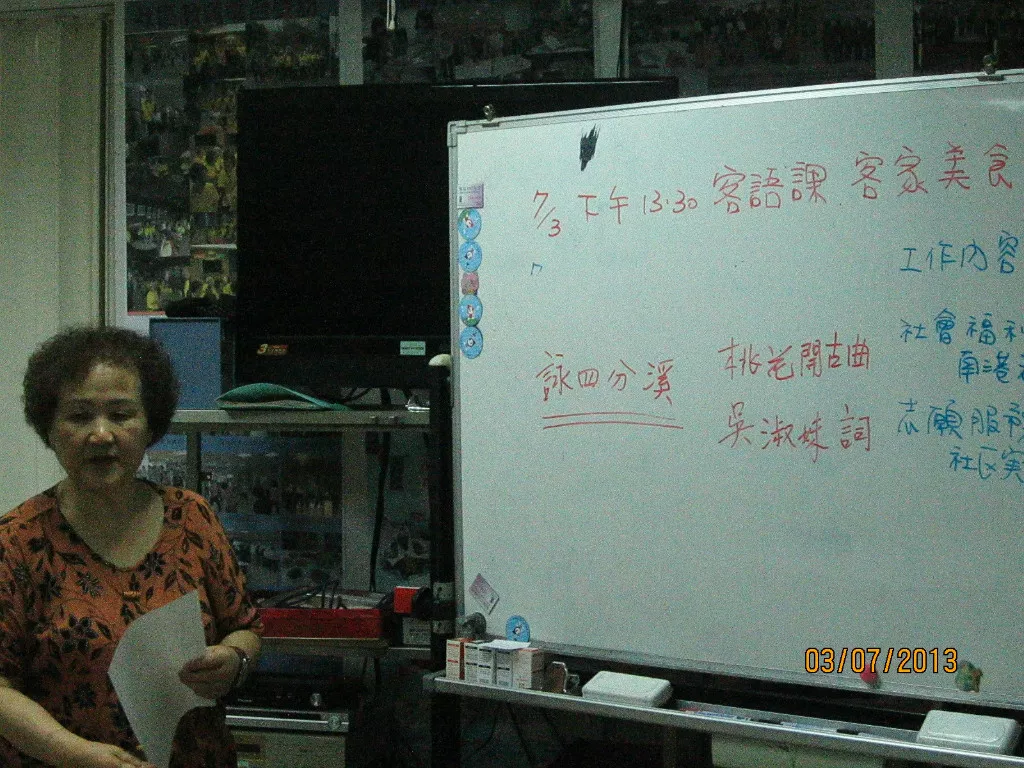 7/3 下午 13:30 客語課 客家美食
工作內容
社會福利
南港
詠四分溪 桃花開古曲
志願服務
吳淑姝詞
社區
03/07/2013